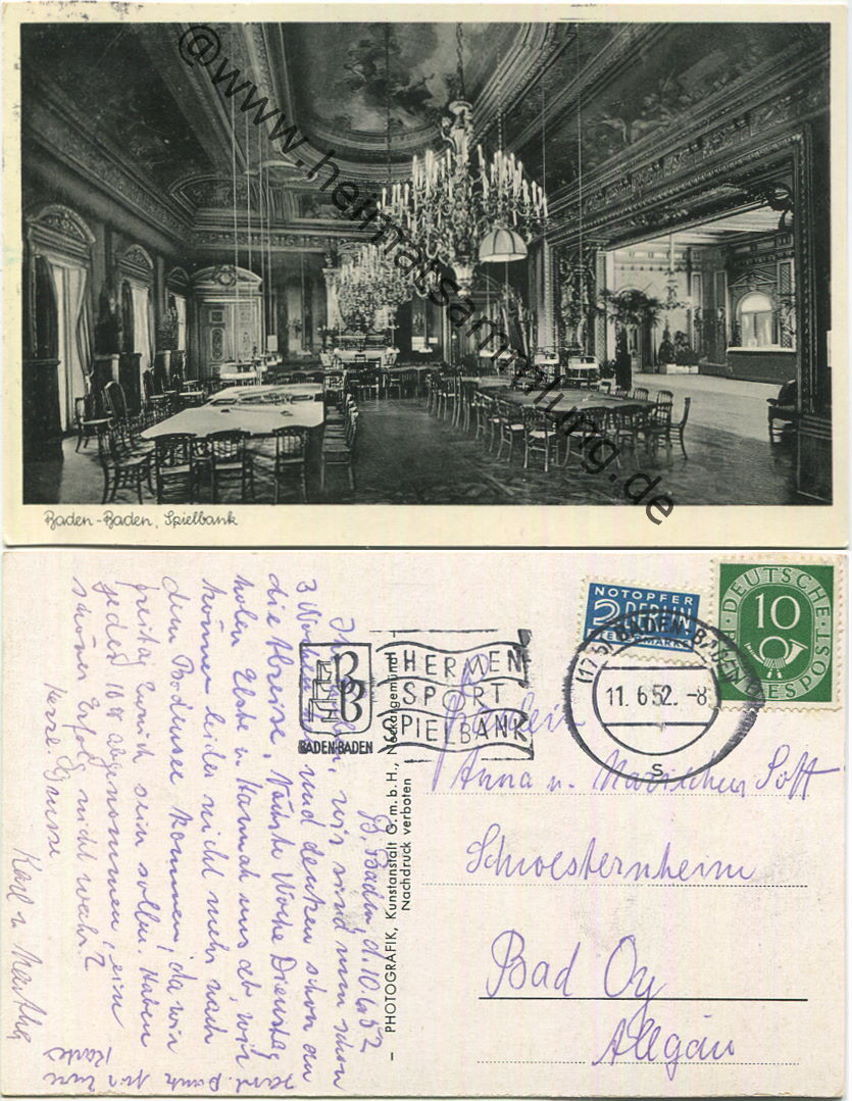 @www.heimatsammlung.de
Baden-Baden, Spielbank
NOTOPFER
2 BERLIN
STEUERMARKE
DEUTSCHE
10
BUNDESPOST
(17b) BADEN-BADEN
11.6.52.-8
s
BB
BADEN-BADEN
THERMEN
SPORT
SPIELBANK
– PHOTOGRAFIK, Kunstanstalt G.m.b.H., Neckargemünd –
Nachdruck verboten
Fräulein
Anna u. Mariechen Sott
Schwesternheim
Bad Oy
Allgäu
B. Baden, d. 10.6.52
Ihr Lieben, wir sind nun schon
3 Wochen hier und denken schon an
die Abreise, Nächste Woche Dienstag
holen Elske u Hannah uns ab, wir
können leider nicht mehr nach
dem Bodensee kommen, da wir
Freitag zurück sein sollen. Haben
jeder 16 abgenommen, ein
schöner Erfolg nicht wahr?
Herzl. Grüsse
Karl u Martha
Dank für Eure
Karte